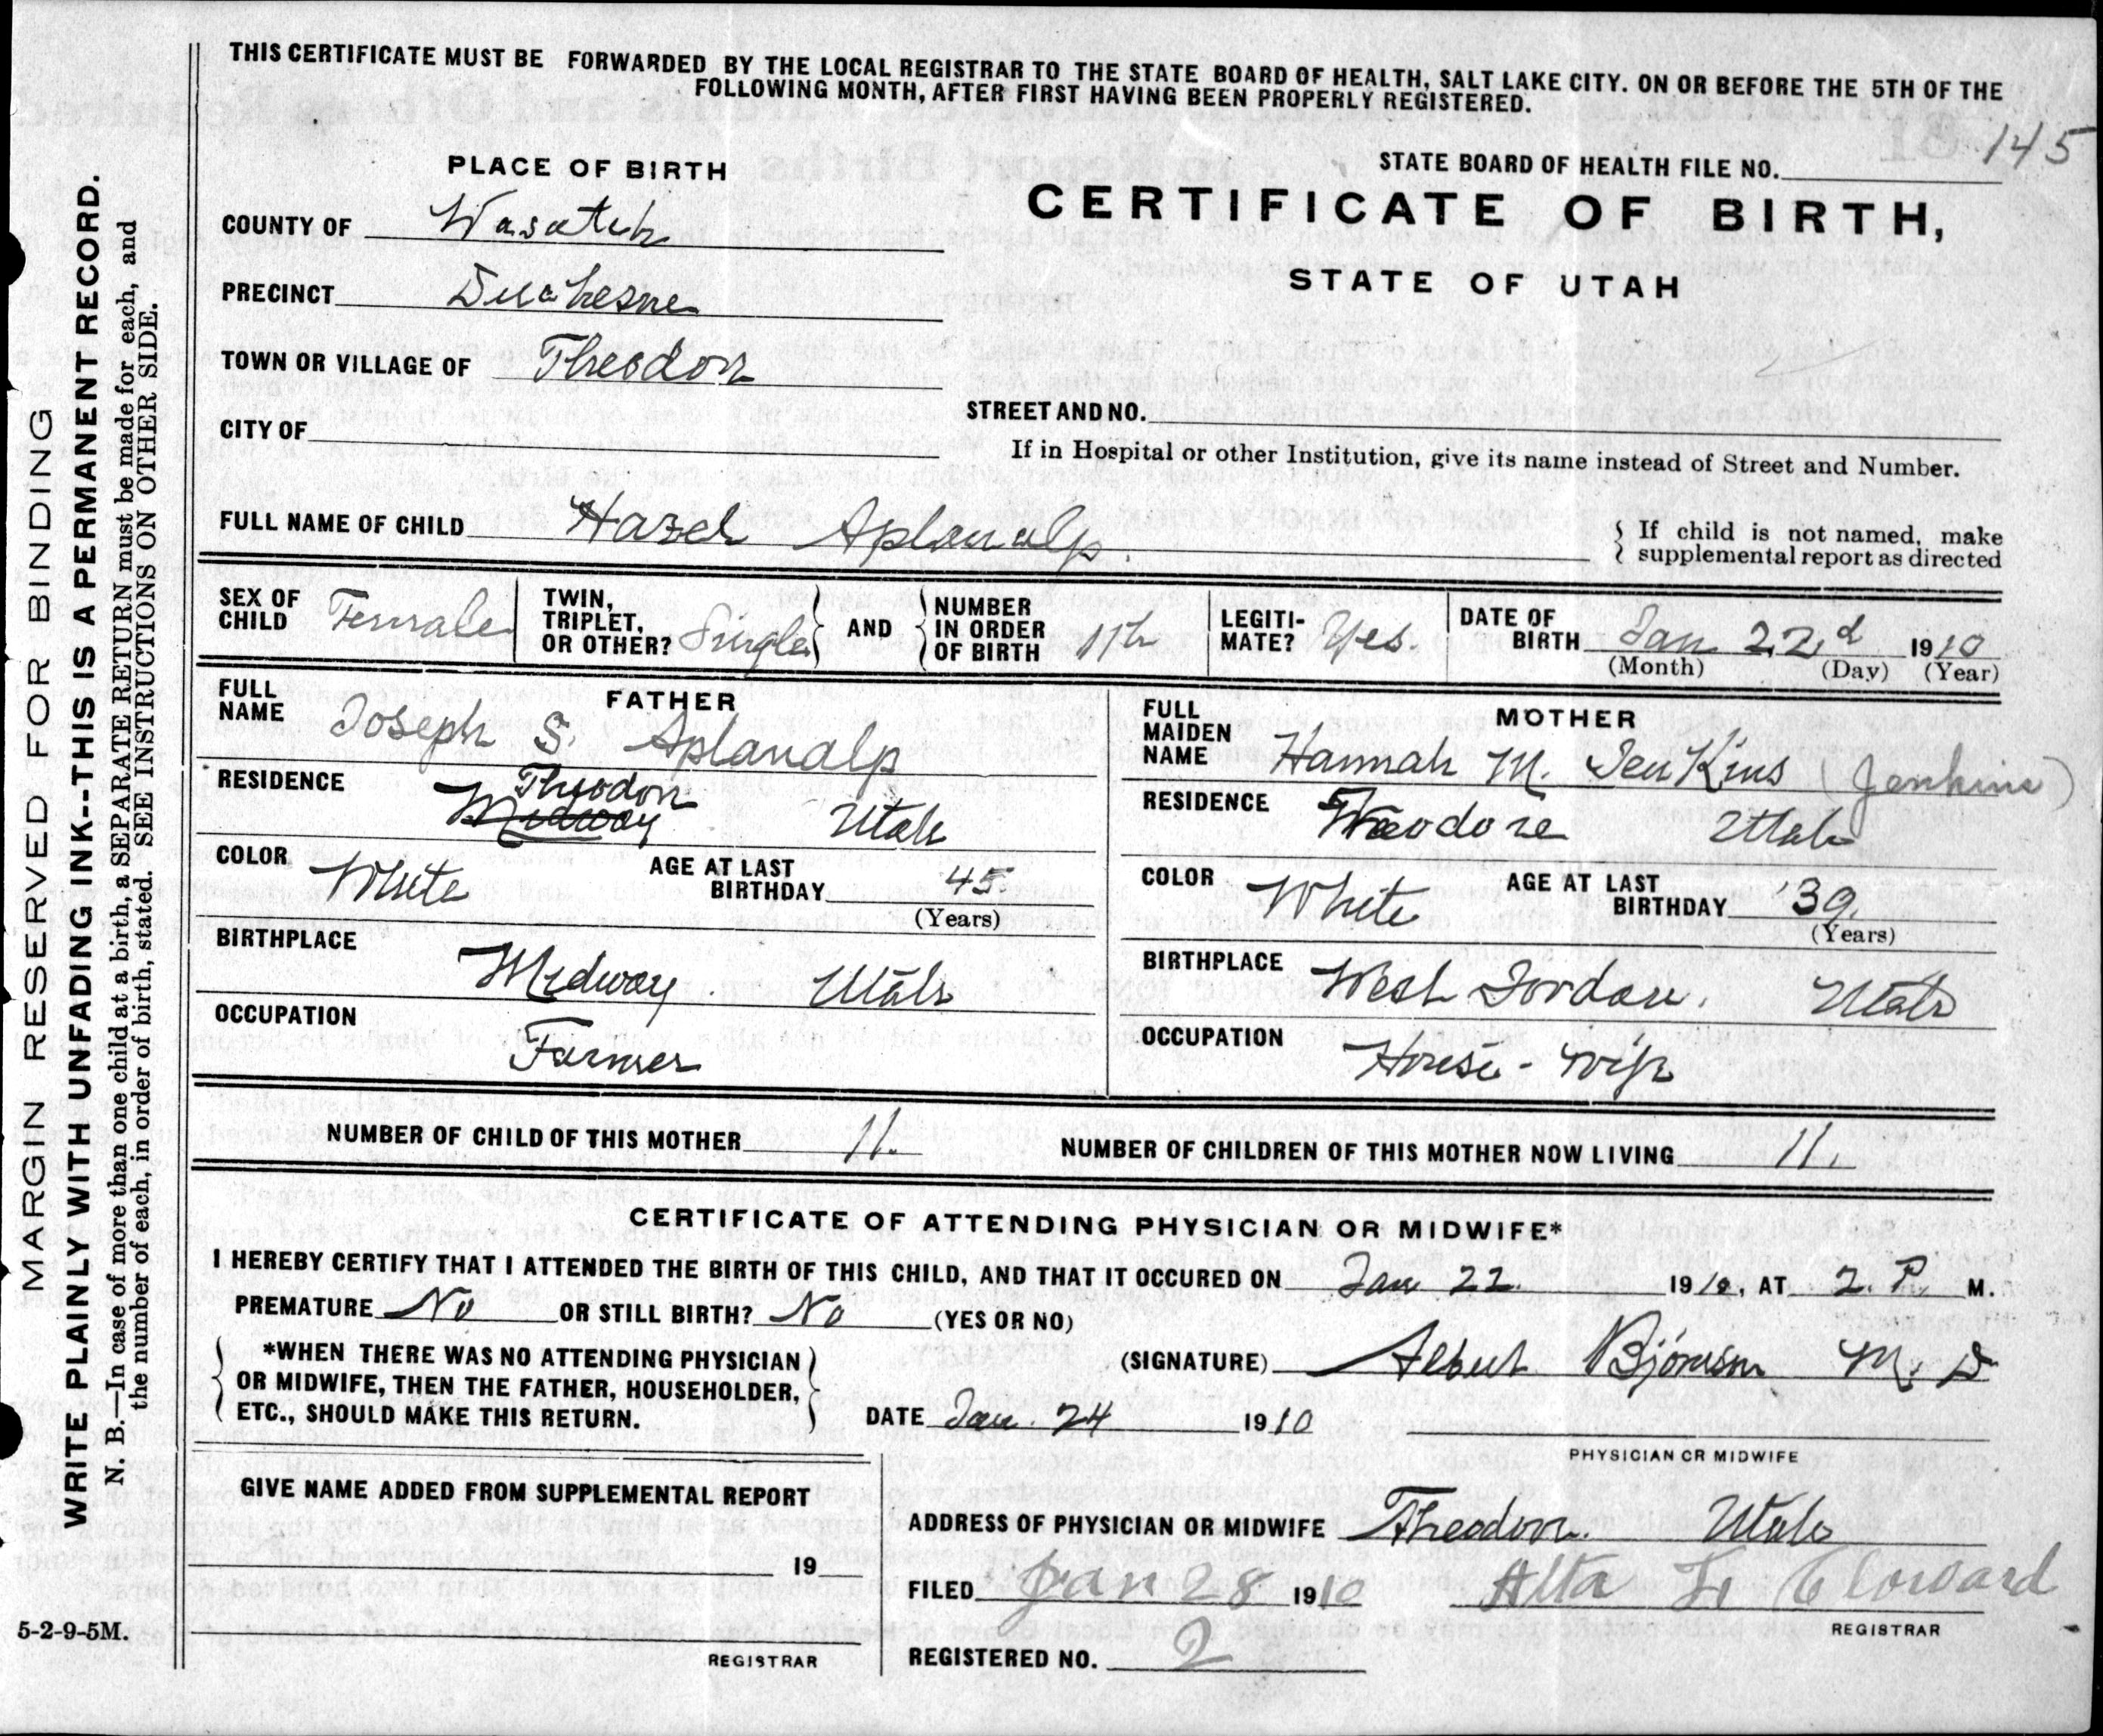 THIS CERTIFICATE MUST BE FORWARDED BY THE LOCAL REGISTRAR TO THE STATE BOARD OF HEALTH, SALT LAKE CITY. ON OR BEFORE THE 5TH OF THE
FOLLOWING MONTH, AFTER FIRST HAVING BEEN PROPERLY REGISTERED.
MARGIN RESERVED FOR BINDING
WRITE PLAINLY WITH UNFADING INK--THIS IS A PERMANENT RECORD.
N. B.—In case of more than one child at a birth, a SEPARATE RETURN must be made for each, and
the number of each, in order of birth, stated. SEE INSTRUCTIONS ON OTHER SIDE.
PLACE OF BIRTH
STATE BOARD OF HEALTH FILE NO. 145
CERTIFICATE OF BIRTH,
STATE OF UTAH
COUNTY OF Wasatch
PRECINCT Duchesne
TOWN OR VILLAGE OF Theodore
CITY OF
STREET AND NO.
If in Hospital or other Institution, give its name instead of Street and Number.
FULL NAME OF CHILD Hazel Aplanalp.
If child is not named, make
supplemental report as directed
SEX OF CHILD Female
TWIN, TRIPLET, OR OTHER? Single
AND
NUMBER IN ORDER OF BIRTH 11th
LEGITI-MATE? Yes.
DATE OF BIRTH Jan 22d 1910
(Month) (Day) (Year)
FATHER
FULL NAME Joseph S. Aplanalp
RESIDENCE Theodore
Midway Utah
COLOR White
AGE AT LAST BIRTHDAY 45
(Years)
BIRTHPLACE Midway. Utah
OCCUPATION Farmer
MOTHER
FULL MAIDEN NAME Hannah M. JenKins (Jenkins)
RESIDENCE Theodore Utah
COLOR White
AGE AT LAST BIRTHDAY 39.
(Years)
BIRTHPLACE West Jordan. Utah
OCCUPATION House-wife
NUMBER OF CHILD OF THIS MOTHER 11.
NUMBER OF CHILDREN OF THIS MOTHER NOW LIVING 11.
CERTIFICATE OF ATTENDING PHYSICIAN OR MIDWIFE*
I HEREBY CERTIFY THAT I ATTENDED THE BIRTH OF THIS CHILD, AND THAT IT OCCURED ON Jan 22. 1910, AT 2. P. M.
PREMATURE No OR STILL BIRTH? No (YES OR NO)
*WHEN THERE WAS NO ATTENDING PHYSICIAN
OR MIDWIFE, THEN THE FATHER, HOUSEHOLDER,
ETC., SHOULD MAKE THIS RETURN.
(SIGNATURE) Albert Bjornson M. D
DATE Jan. 24 1910
PHYSICIAN OR MIDWIFE
GIVE NAME ADDED FROM SUPPLEMENTAL REPORT
19
REGISTRAR
ADDRESS OF PHYSICIAN OR MIDWIFE Theodore. Utah
FILED Jan 28 1910 Alta Cloward
REGISTRAR
REGISTERED NO. 2
5-2-9-5M.